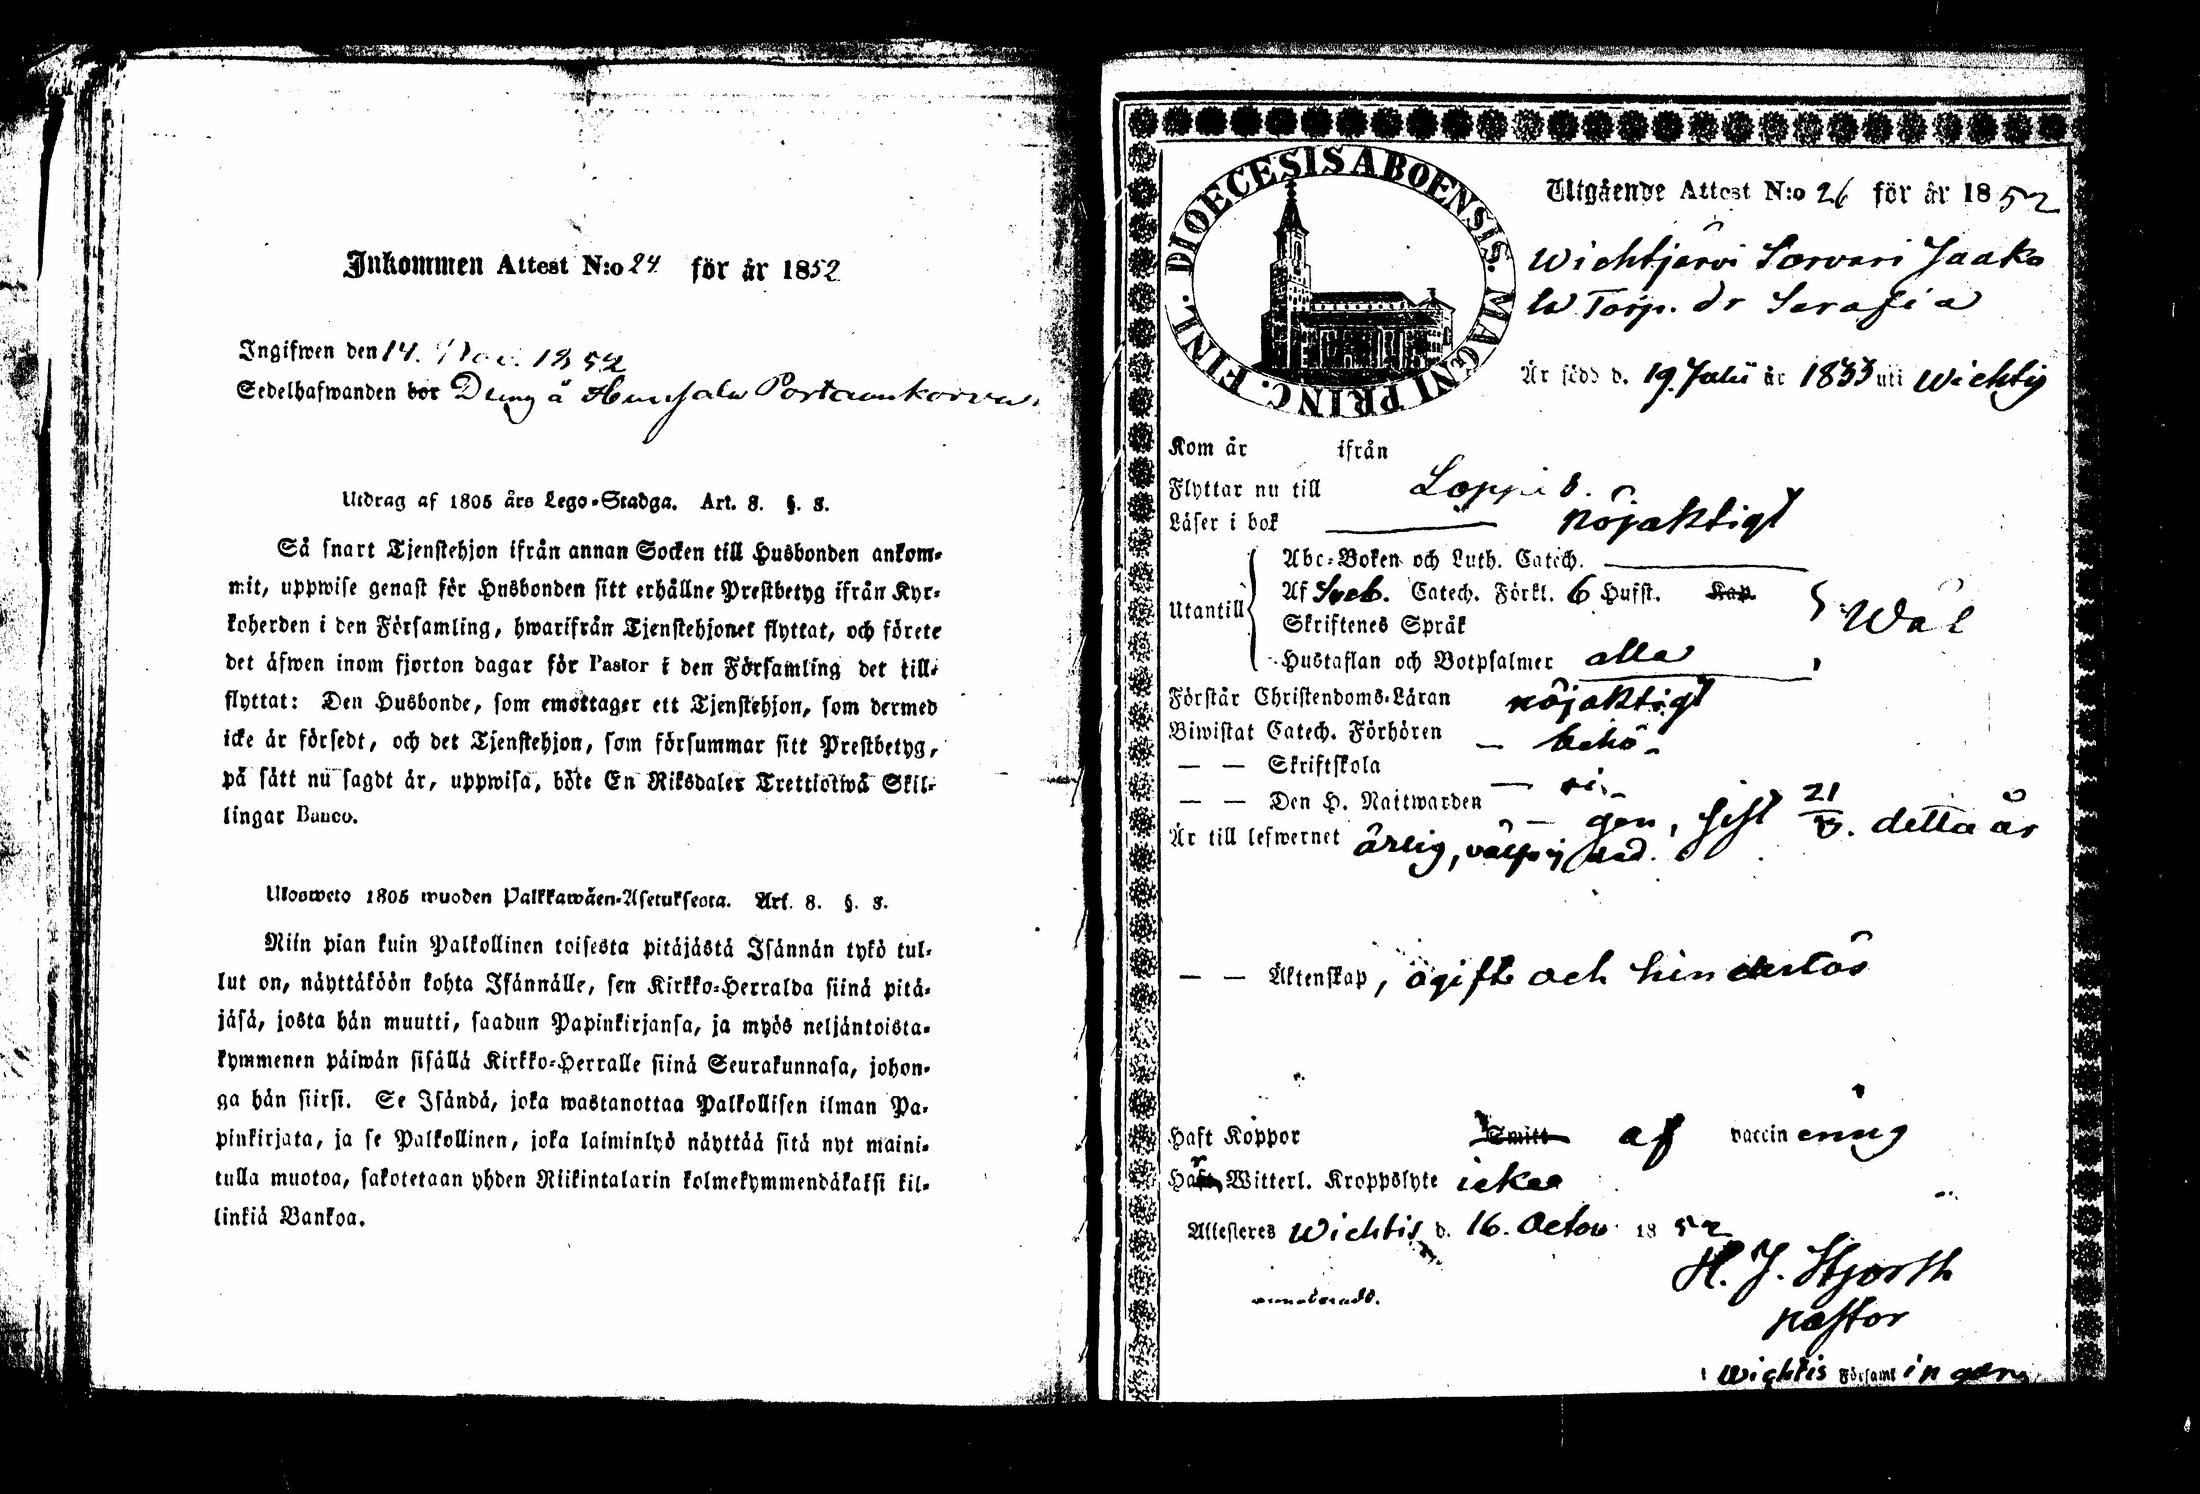 Inkommen Attest N:o 24 för år 1852
Ingifwen den 14. Nov. 1852
Sedelhafwanden bor Dräng å
Utdrag af 1805 års Lego-Stadga. Art. 8. §. 3.
Så snart Tjenstehjon ifrån annan Socken till Husbonden ankom-
mit, uppwise genast för Husbonden sitt erhållne Prestbetyg ifrån Kyr-
koherden i den Församling, hwarifrån Tjenstehjonet flyttat, och förete
det äfwen inom fjorton dagar för Pastor i den Församling det till-
flyttat: Den Husbonde, som emottager ett Tjenstehjon, som dermed
icke är försedt, och det Tjenstehjon, som försummar sitt Prestbetyg,
på sätt nu sagdt är, uppwisa, böte En Riksdaler Trettiotwå Skil-
lingar Banco.
Ulosweto 1805 wuoden Palkkawäen-Asetuksesta. Art. 8. §. 3.
Niin pian kuin Palkollinen toisesta pitäjästä Isännän tykö tul-
lut on, näyttäköön kohta Isännälle, sen Kirkko-Herralda siinä pitä-
jäsä, josta hän muutti, saadun Papinkirjansa, ja myös neljäntoista-
kymmenen päiwän sisällä Kirkko-Herralle siinä Seurakunnasa, johon-
ga hän siirsi. Se Isändä, joka wastanottaa Palkollisen ilman Pa-
pinkirjata, ja se Palkollinen, joka laiminlyö näyttää sitä nyt maini-
tulla muotoa, sakotetaan yhden Riikintalarin kolmekymmendäkaksi kil-
linkiä Bankoa.
DIOECESIS ABOENSIS. MAGNI PRINC. FINL.
Utgående Attest N:o 26 för år 1852
Wichtjärvi Sorvari Jaako
Torp. dr Serafia
Är född d. 19. Julii år 1833 uti Wichtis
Kom år ifrån
Flyttar nu till Loppis.
Läser i bok nöjaktigt
Utantill
Abc-Boken och Luth. Catech.
Af Sveb. Catech. Förkl. 6 Hufst. Kap.
Skriftenes Språk
Wäl
Hustaflan och Botpsalmer alla
Förstår Christendoms-Läran nöjaktigt
Biwistat Catech. Förhören — behö-
— — Skriftskola — ri-
— — Den H. Nattwarden — gen, sist 21/3. detta år
Är till lefwernet ärlig,
— — Äktenskap, ogift och hinderlös
Haft Koppor Smitt af vaccin
Har Witterl. Kroppslyte icke
Attesteres Wichtis d. 16. Octob. 1852
H. J. Hjorth
Pastor
i Wichtis Församl